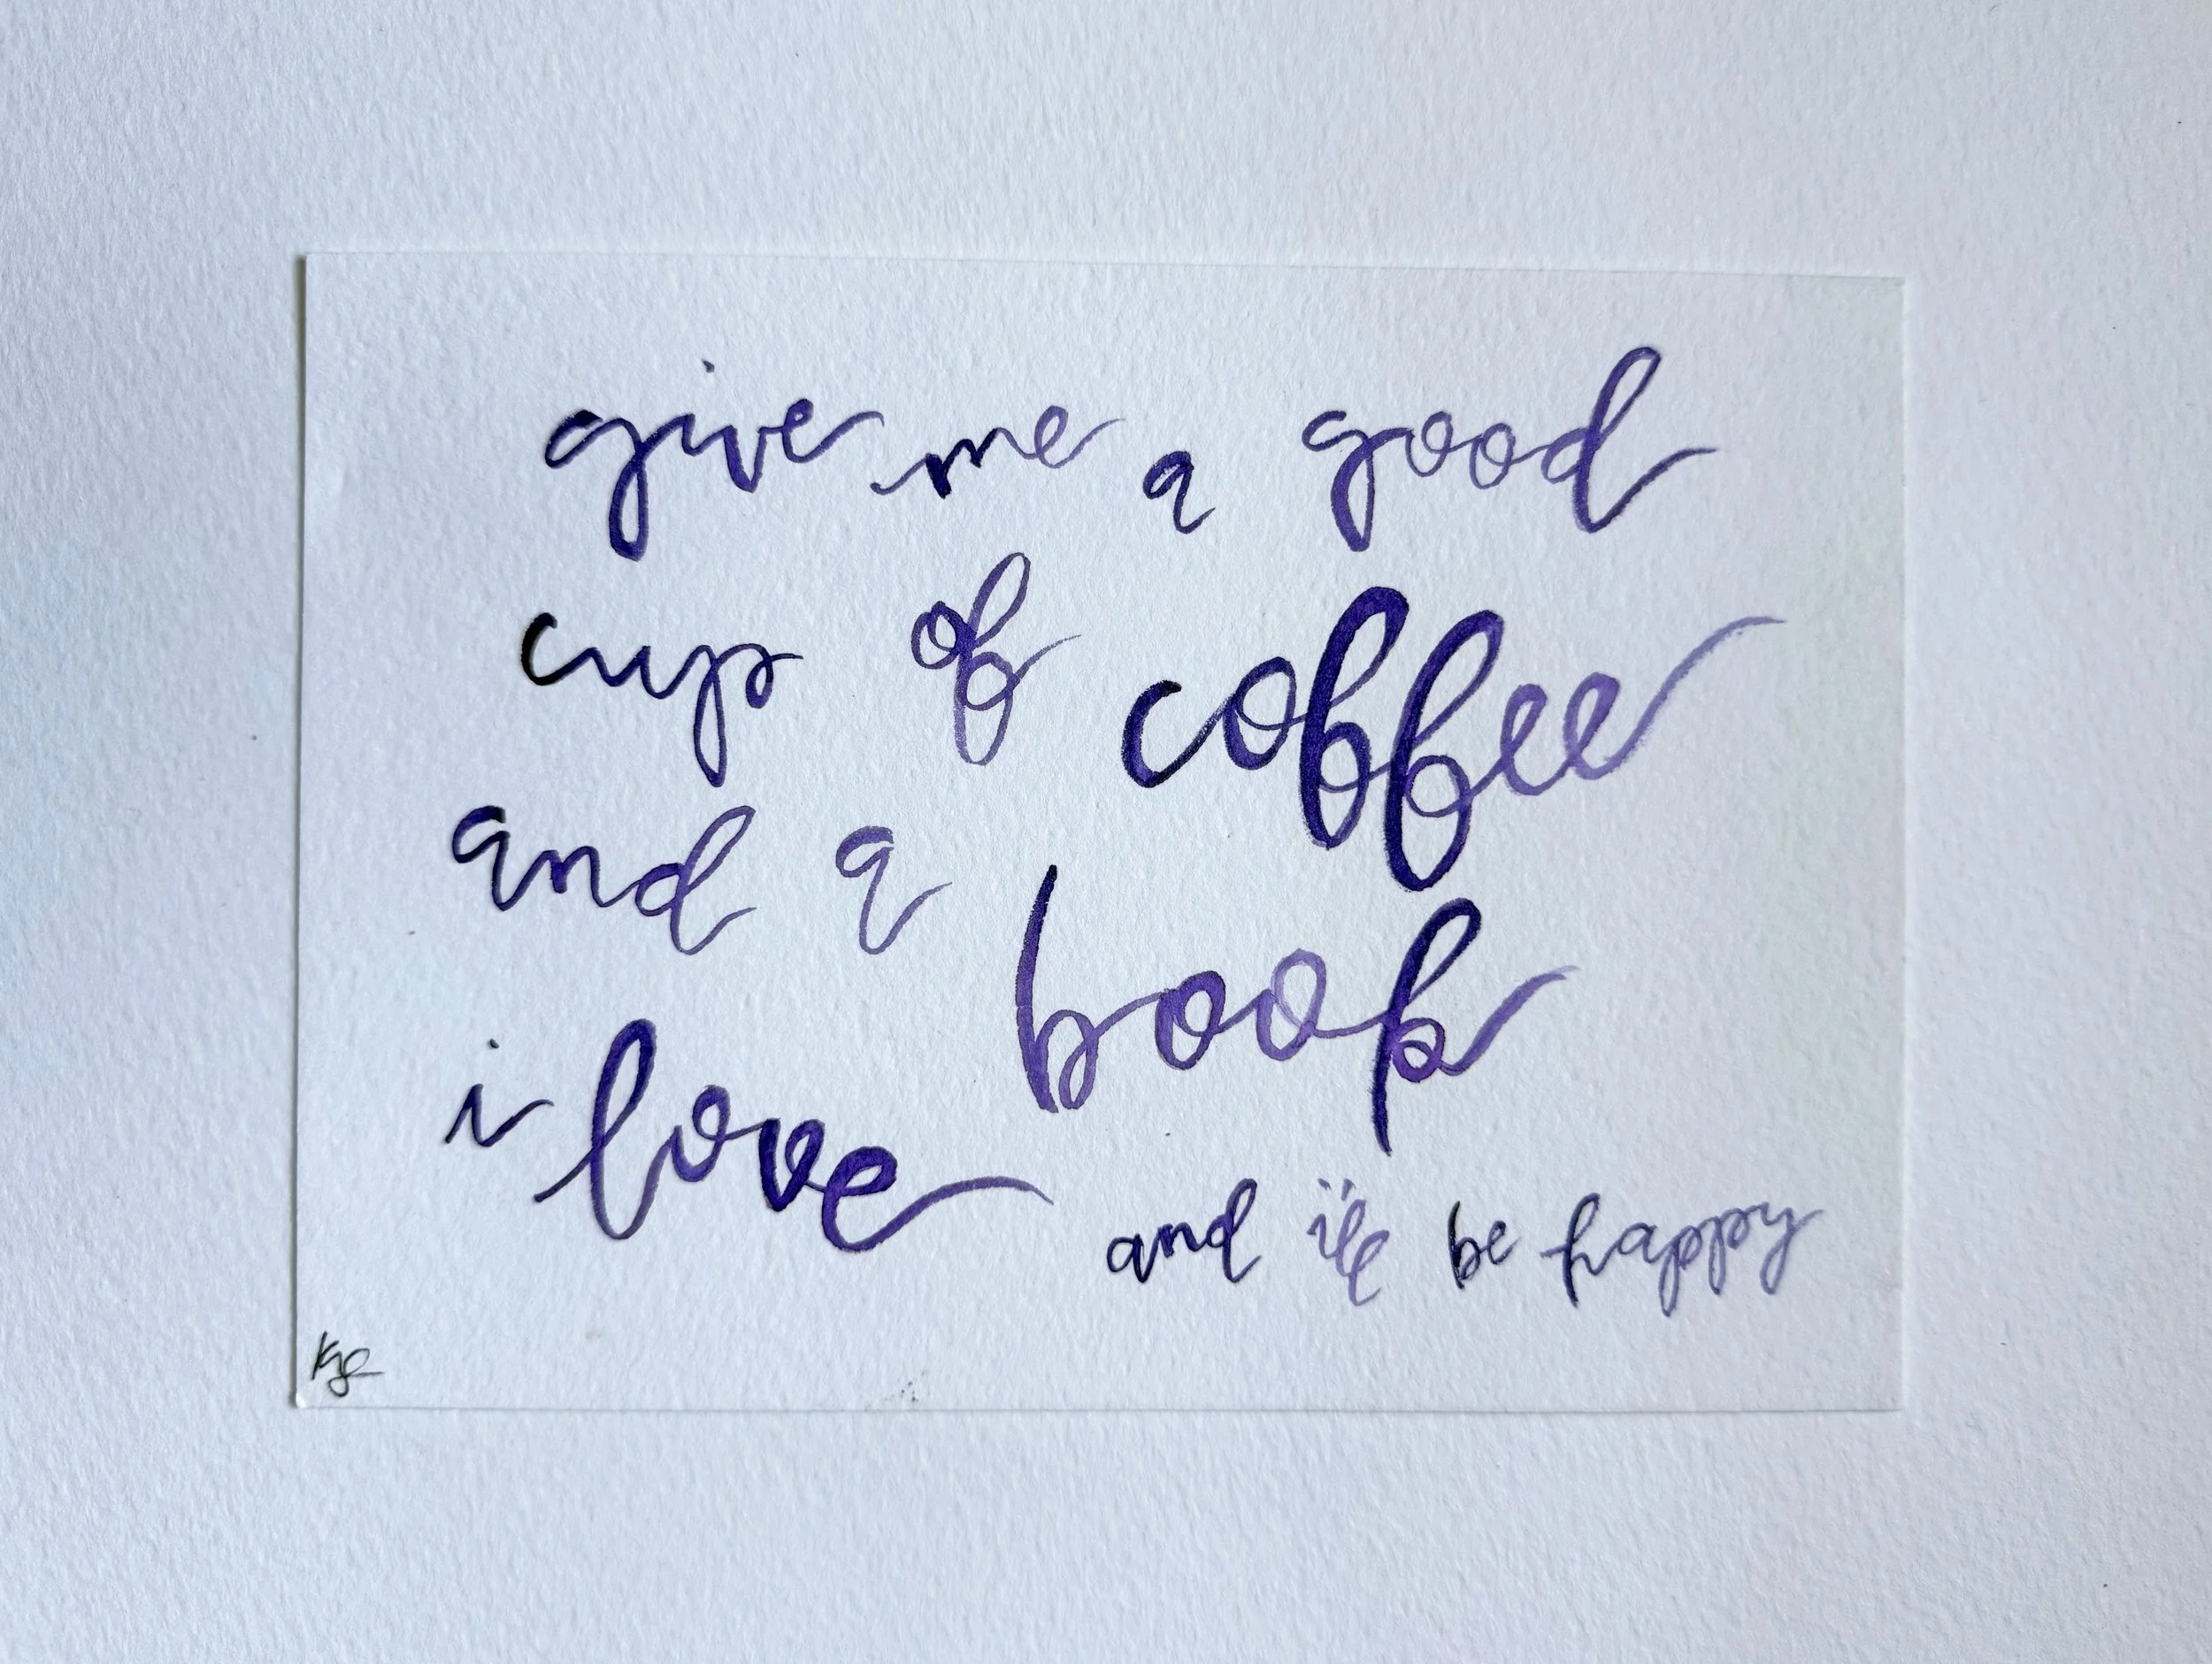 give me a good
cup of coffee
and a book
i love
and i'll be happy